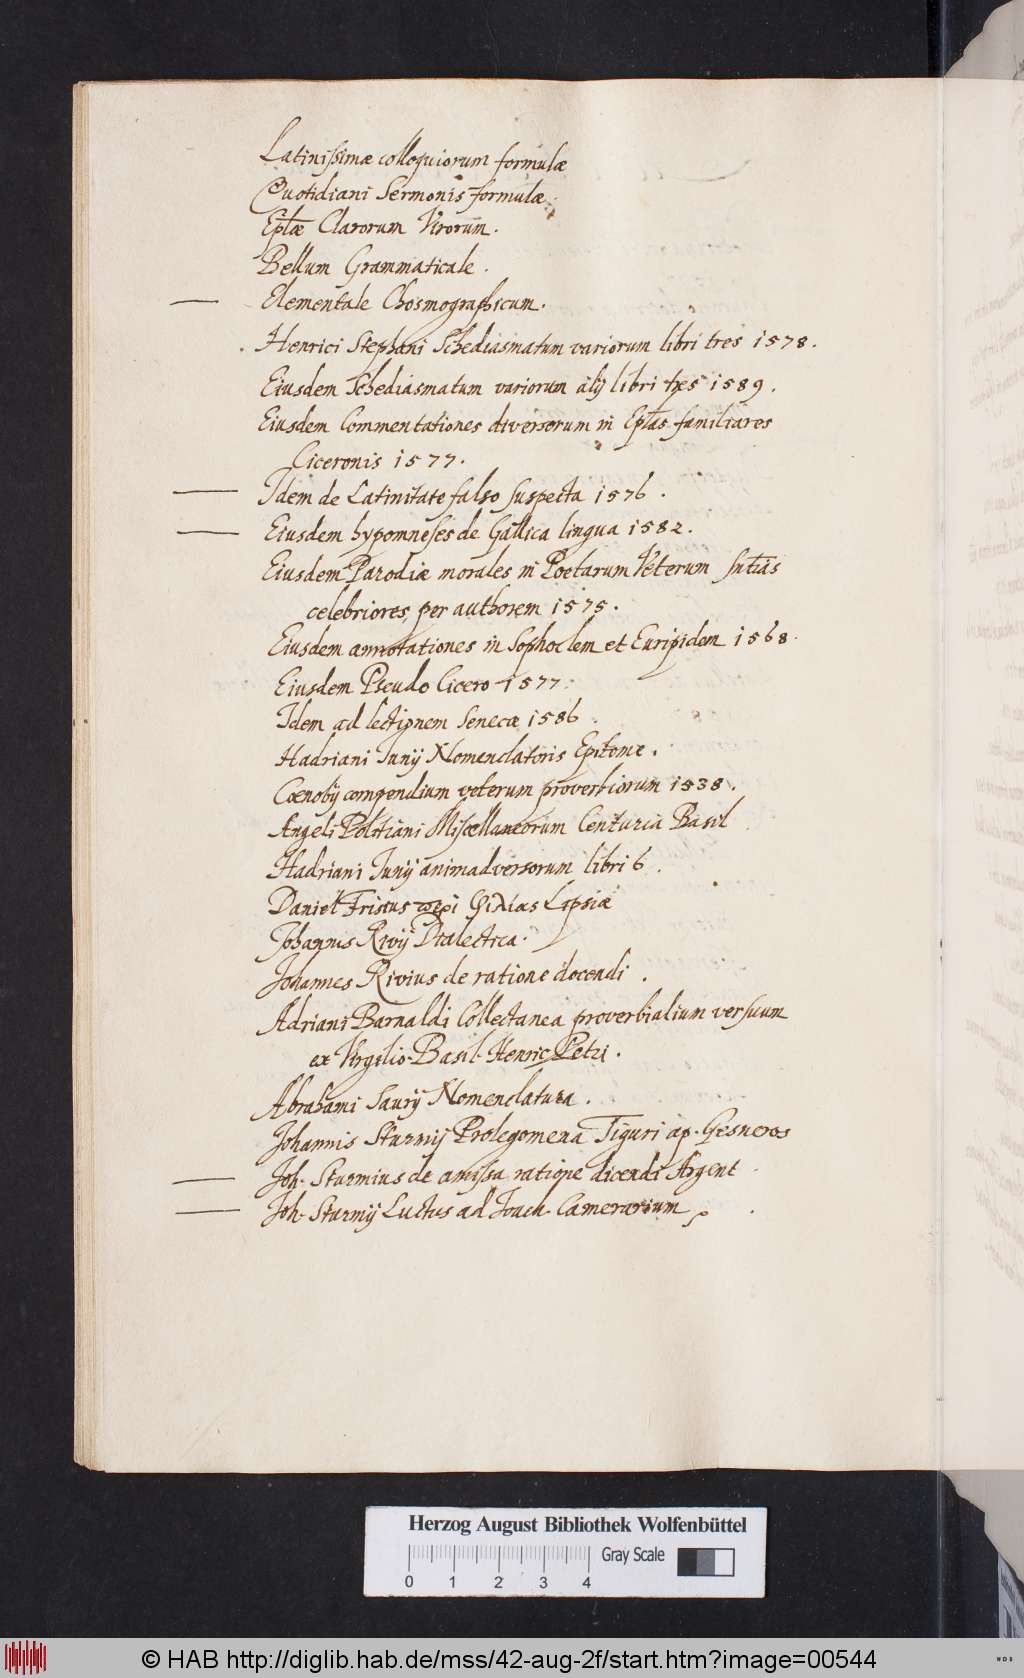 Latinissimæ colloquiorum formulæ
Quotidiani Sermonis formulæ.
Eptæ Clarorum Virorum.
Bellum Grammaticale.
Elementale Chosmographicum.
Henrici Stephani Schediasmatum variorum libri tres 1578.
Eiusdem Schediasmatum variorum alij libri tres 1589.
Eiusdem Commentationes diversorum in Eptas familiares
Ciceronis 1577.
Idem de Latinitate falso suspecta 1576.
Eiusdem hypomneses de Gallica lingua 1582.
Eiusdem Parodiæ morales in Poetarum Veterum sntias
celebriores, per authorem 1575.
Eiusdem annotationes in Sophoclem et Euripidem 1568.
Eiusdem Pseudo Cicero 1577.
Idem ad lectionem Senecæ 1586.
Hadriani Junij Nomenclatoris Epitome.
Cœnobij compendium veterum proverbiorum 1538.
Angeli Politiani Miscellaneorum Centuria Basil
Hadriani Junij animadversorum libri 6.
Daniel Frisius περὶ φιλίας Lipsiæ
Johannis Rivij Dialectica.
Johannes Rivius de ratione docendi.
Adriani Barnaldi Collectanea proverbialium versuum
ex Virgilio. Basil. Henric Petri.
Abrahami Saurij Nomenclatura.
Johannis Sturmij Prolegomena Tiguri ap. Gesneros
Joh. Sturmius de amissa ratione dicendi Argent
Joh. Sturmij Luctus ad Joach. Camerarium
Herzog August Bibliothek Wolfenbüttel
Gray Scale
0 1 2 3 4
© HAB http://diglib.hab.de/mss/42-aug-2f/start.htm?image=00544